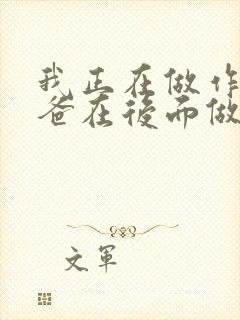 我正在做作
爸在後而做
文軍